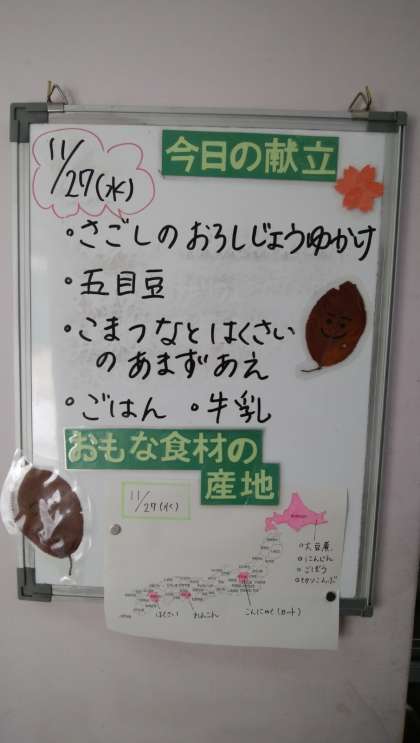 11/27(水)
今日の献立
・さごしのおろしじょうゆかけ
・五目豆
・こまつなとはくさい
のあまずあえ
・ごはん ・牛乳
おもな食材の
産地
11/27(水)
○大豆煮
○にんじん
○ごぼう
はくさい
れんこん
こんにゃく(カート)